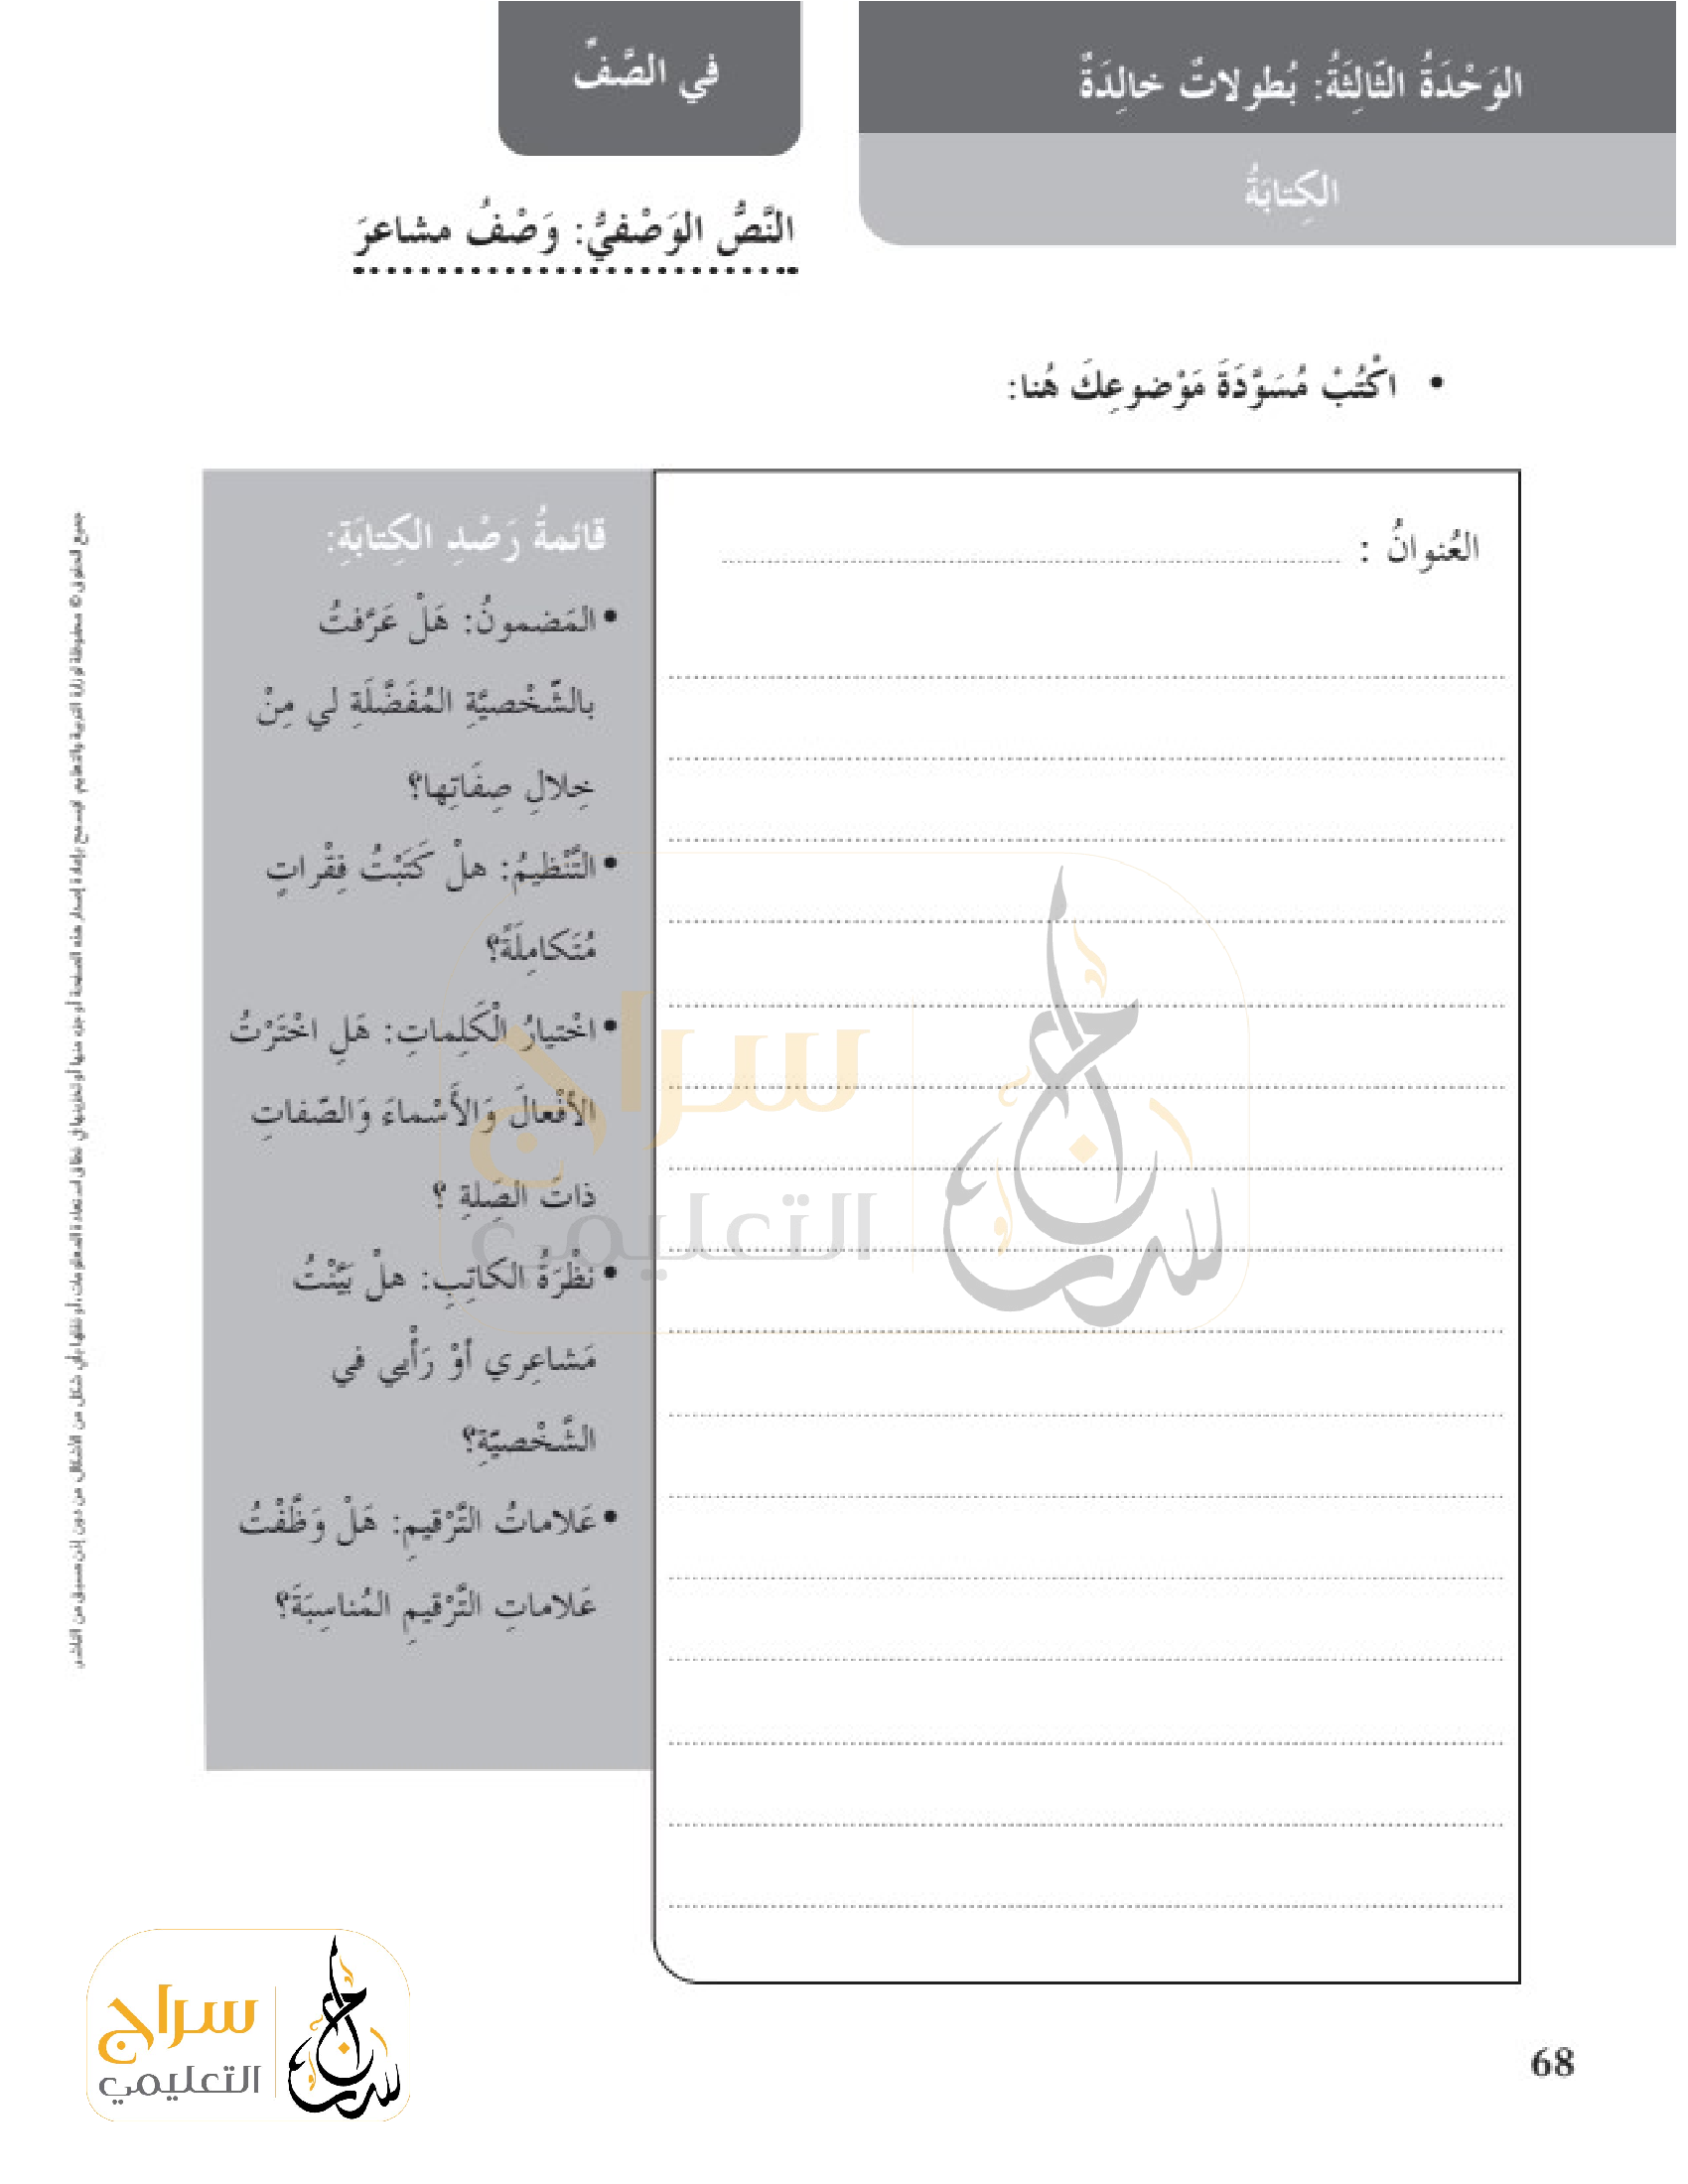 الوَحْدَةُ الثّالِثَةُ: بُطولاتٌ خالِدَةٌ
في الصَّفِّ
الكِتابَةُ
النَّصُّ الوَصْفيُّ: وَصْفُ مشاعرَ
• اكْتُبْ مُسَوَّدَةَ مَوْضوعِكَ هُنا:
العُنوانُ :
قائمةُ رَصْدِ الكِتابَةِ:
• المَضمونُ: هَلْ عَرَّفتُ
بالشَّخْصيَّةِ المُفَضَّلَةِ لي مِنْ
خِلالِ صِفَاتِها؟
• التَّنْظيمُ: هلْ كَتَبْتُ فِقْراتٍ
مُتَكامِلَةً؟
• اخْتيارُ الْكَلِماتِ: هَلِ اخْتَرْتُ
الأَفْعالَ وَالأَسْماءَ وَالصّفاتِ
ذاتَ الصِّلةِ ؟
• نظْرَةُ الكاتِبِ: هلْ بَيَّنْتُ
مَشاعِري أوْ رَأْيي في
الشَّخْصيّةِ؟
• عَلاماتُ التَّرْقيمِ: هَلْ وَظَّفْتُ
عَلاماتِ التَّرْقيمِ المُناسِبَةَ؟
جميع الحقوق © محفوظة لوزارة التربية والتعليم. لايسمح بإعادة إصدار هذه الصفحة أو جزء منها أو تخزينها في نطاق استعادة المعلومات، أو نقلها بأي شكل من الأشكال من دون إذن مسبق من الناشر.
سراج
التعليمي
سراج
سراج
التعليمي
سراج
68